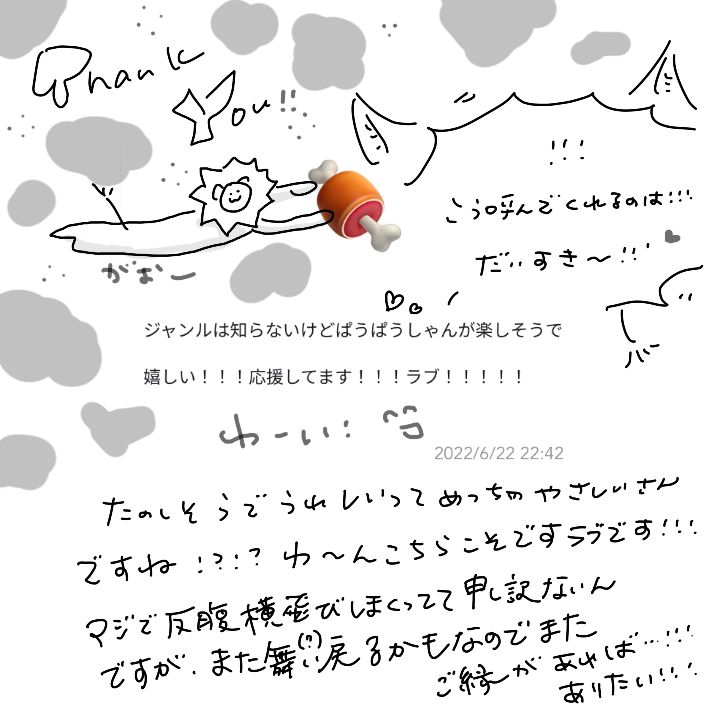 Thank
You!!
!!!
こう呼んでくれるのは!!!
だいすき〜!!
がおー
ジャンルは知らないけどぱうぱうしゃんが楽しそうで
嬉しい！！！応援してます！！！ラブ！！！！！
わーい!
2022/6/22 22:42
たのしそうでうれしいってめっちゃやさしいさん
ですね!?!? わ〜んこちらこそですラブです!!!
マジで反腹横飛びしまくってて申し訳ないん
ですが、また舞い(?)戻るかもなのでまた
ご縁があれば…!!!
ありたい!!!